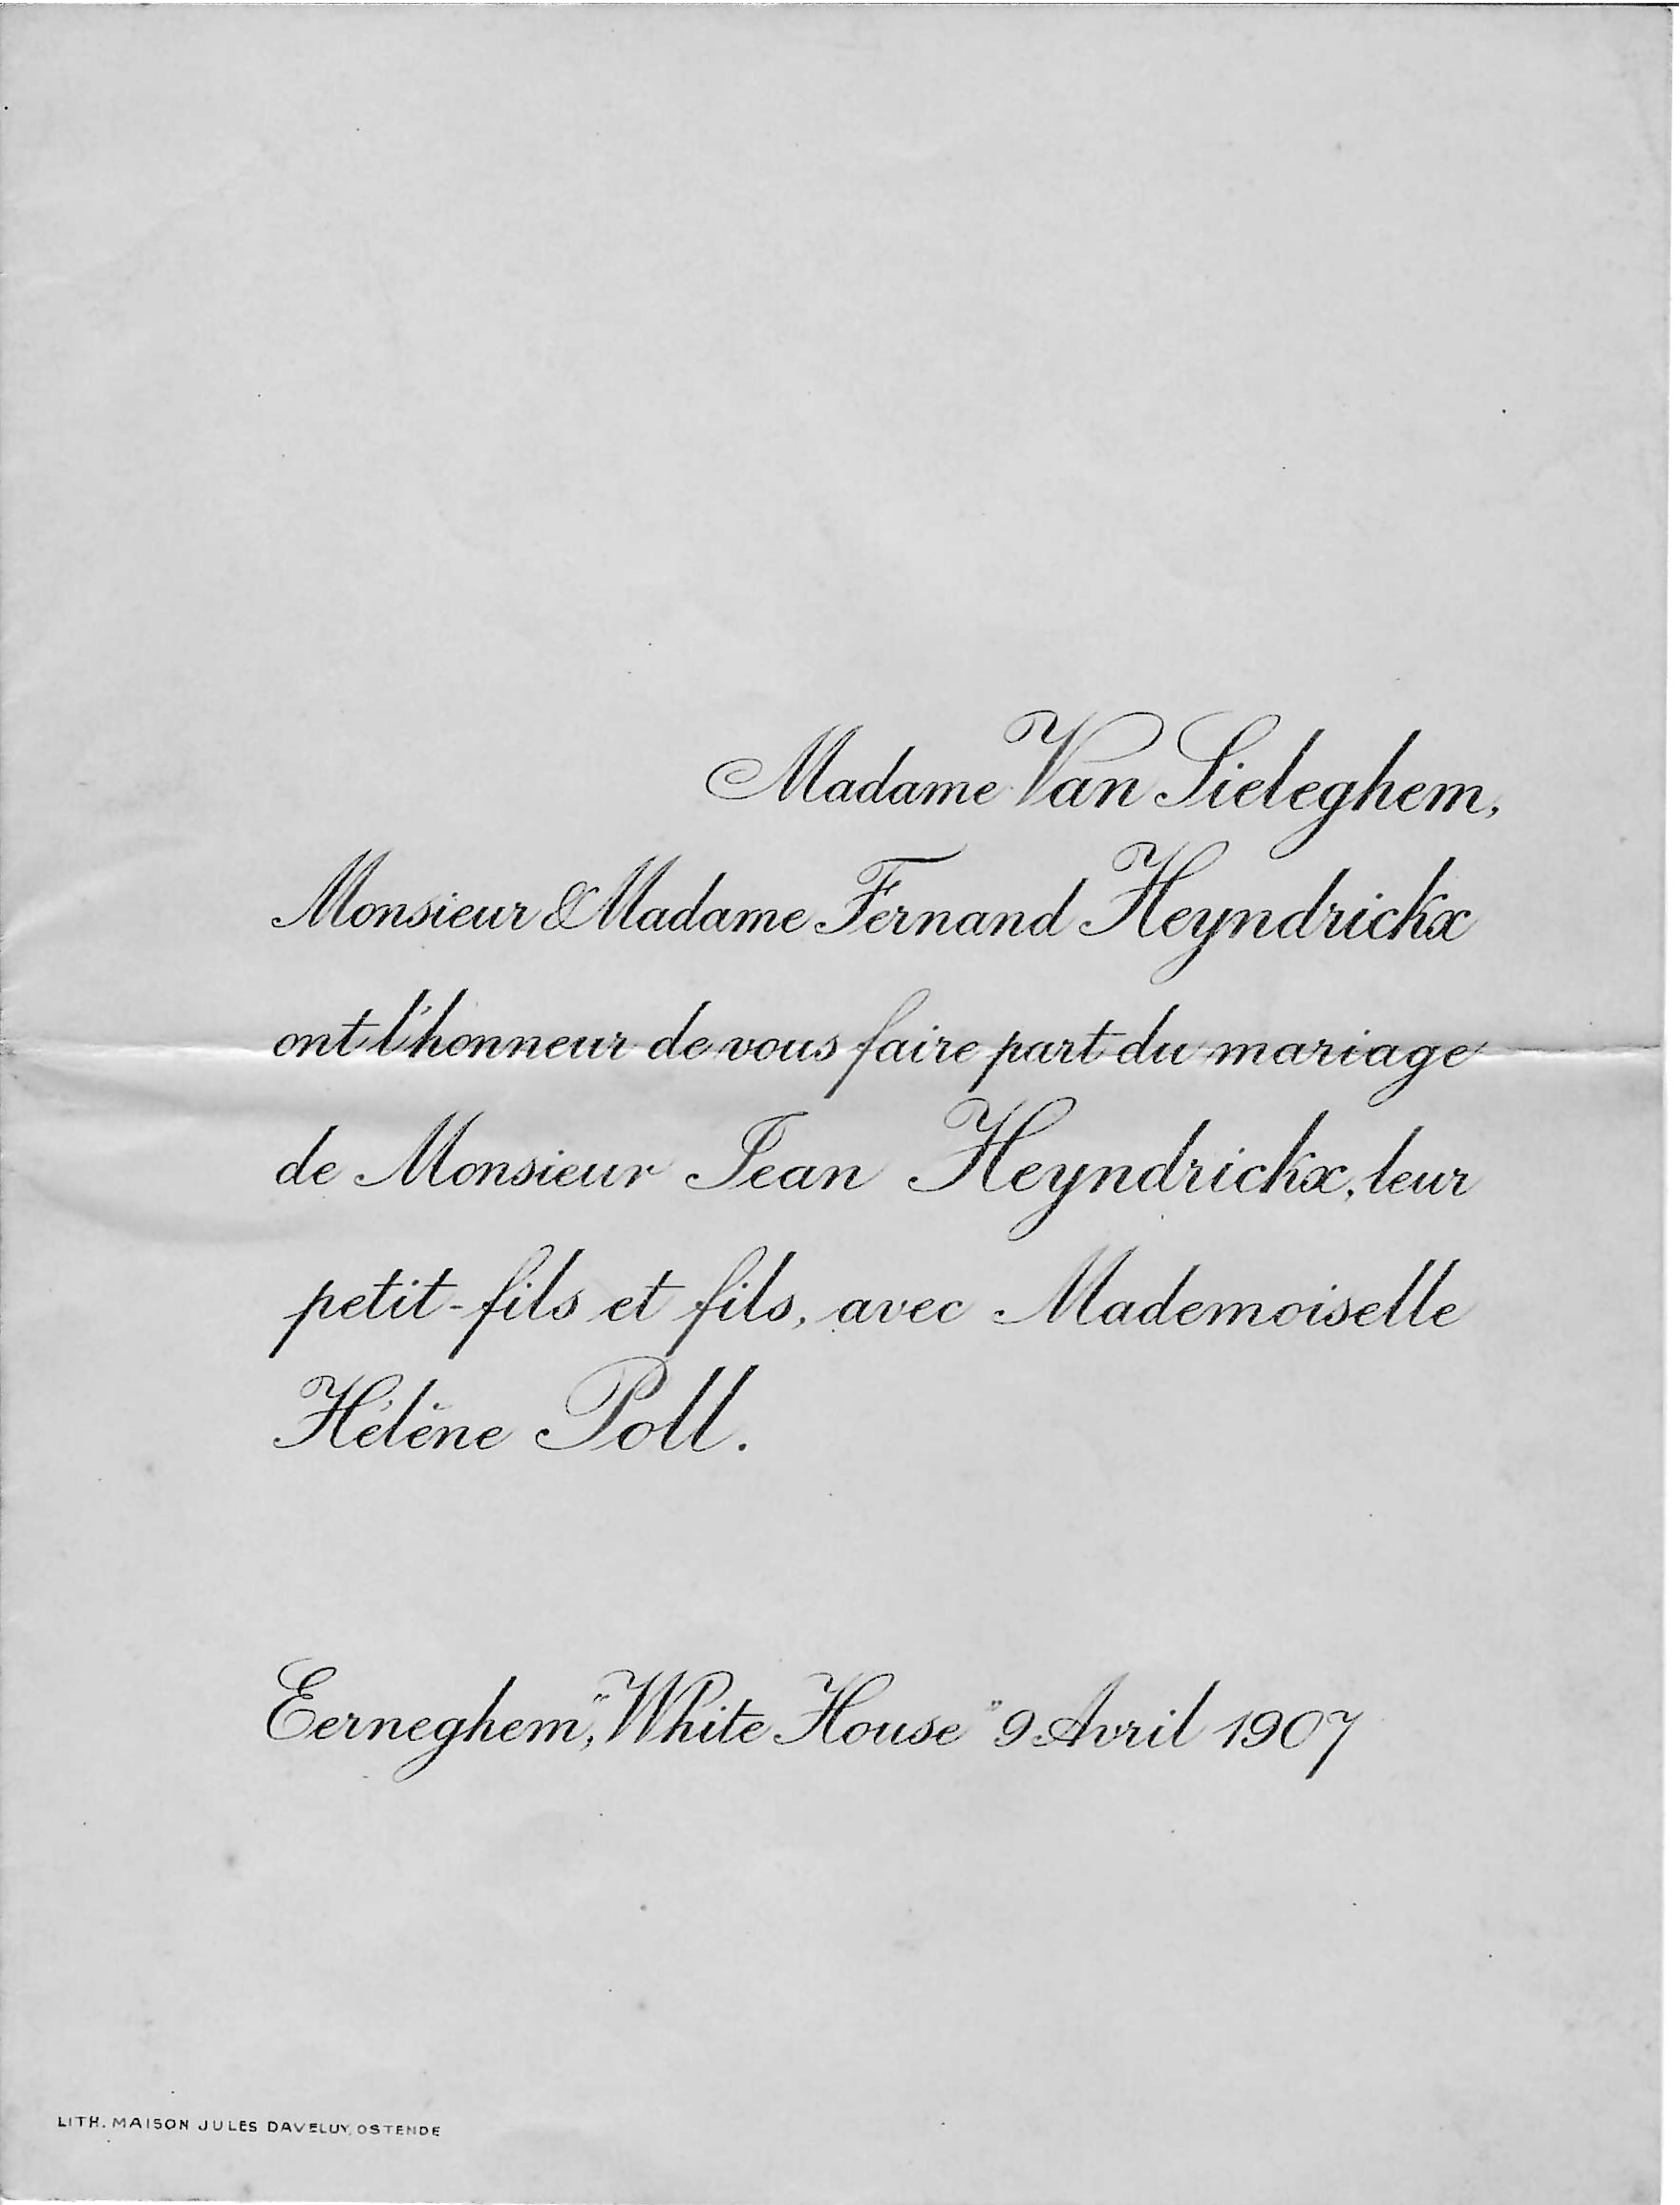 Madame Van Sieleghem,
Monsieur & Madame Fernand Heyndrickx
ont l'honneur de vous faire part du mariage
de Monsieur Jean Heyndrickx, leur
petit-fils et fils, avec Mademoiselle
Hélène Poll.
Eerneghem, "White House" 9 Avril 1907
LITH. MAISON JULES DAVELUY, OSTENDE